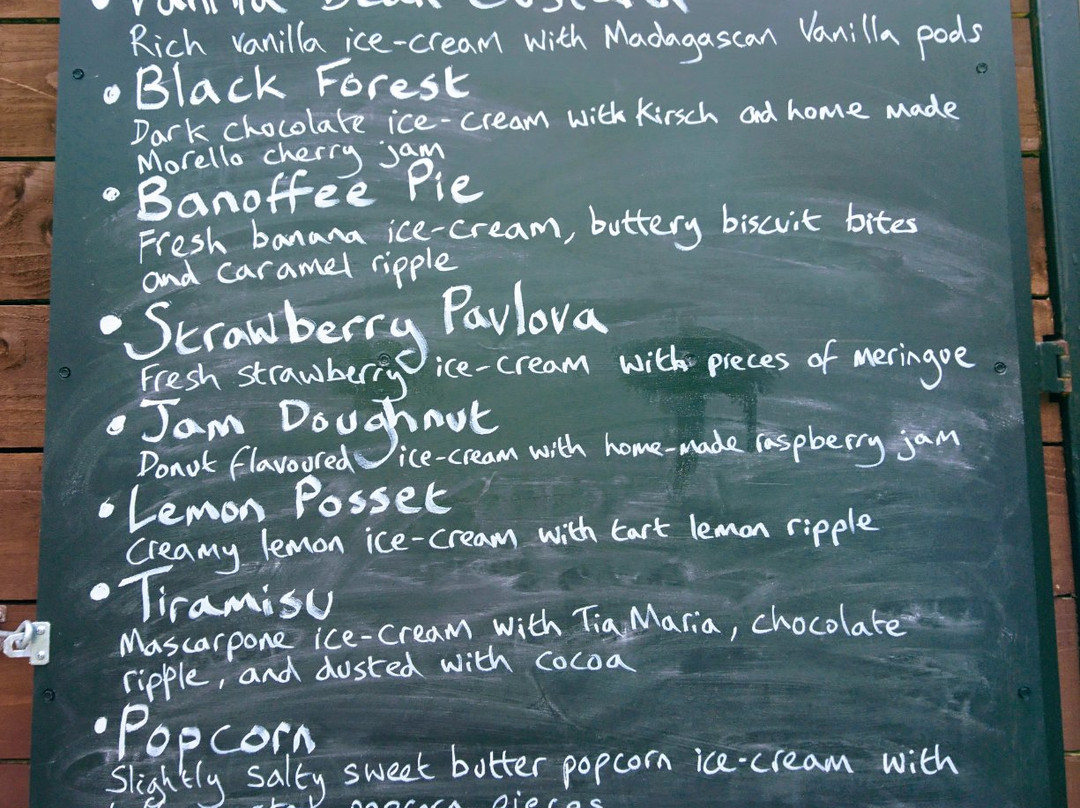 Vanilla Bean Custard
Rich vanilla ice-cream with Madagascan Vanilla pods
• Black Forest
Dark chocolate ice-cream with Kirsch and home made
Morello cherry jam
• Banoffee Pie
Fresh banana ice-cream, buttery biscuit bites
and caramel ripple
• Strawberry Pavlova
Fresh strawberry ice-cream with pieces of meringue
• Jam Doughnut
Donut flavoured ice-cream with home-made raspberry jam
• Lemon Posset
Creamy lemon ice-cream with tart lemon ripple
• Tiramisu
Mascarpone ice-cream with Tia Maria, chocolate
ripple, and dusted with cocoa
• Popcorn
Slightly salty sweet butter popcorn ice-cream with
popcorn pieces